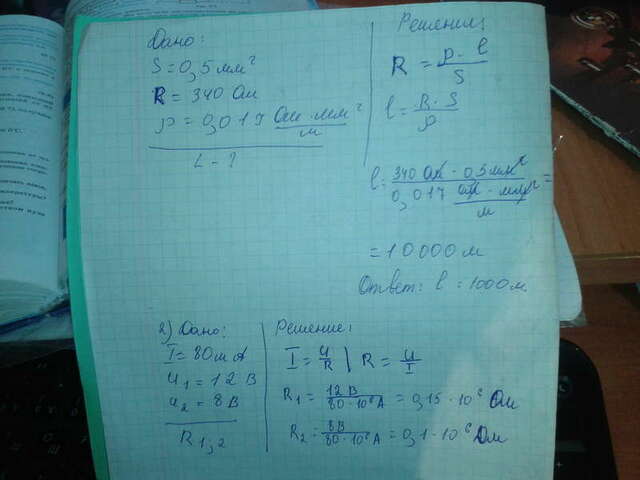 Дано:
S = 0,5 мм²
R = 340 Ом
ρ = 0,017 Ом · мм² / м
L - ?
Решение:
R = ρ · l / S
l = R · S / ρ
l = 340 Ом · 0,5 мм² / 0,017 Ом · мм² / м =
= 10000 м
Ответ: l = 1000 м.
2) Дано:
I = 80 m A
U₁ = 12 В
U₂ = 8 В
R₁,₂
Решение:
I = U / R | R = U / I
R₁ = 12 В / 80 · 10⁶ А = 0,15 · 10⁶ Ом
R₂ = 8 В / 80 · 10⁶ А = 0,1 · 10⁶ Ом